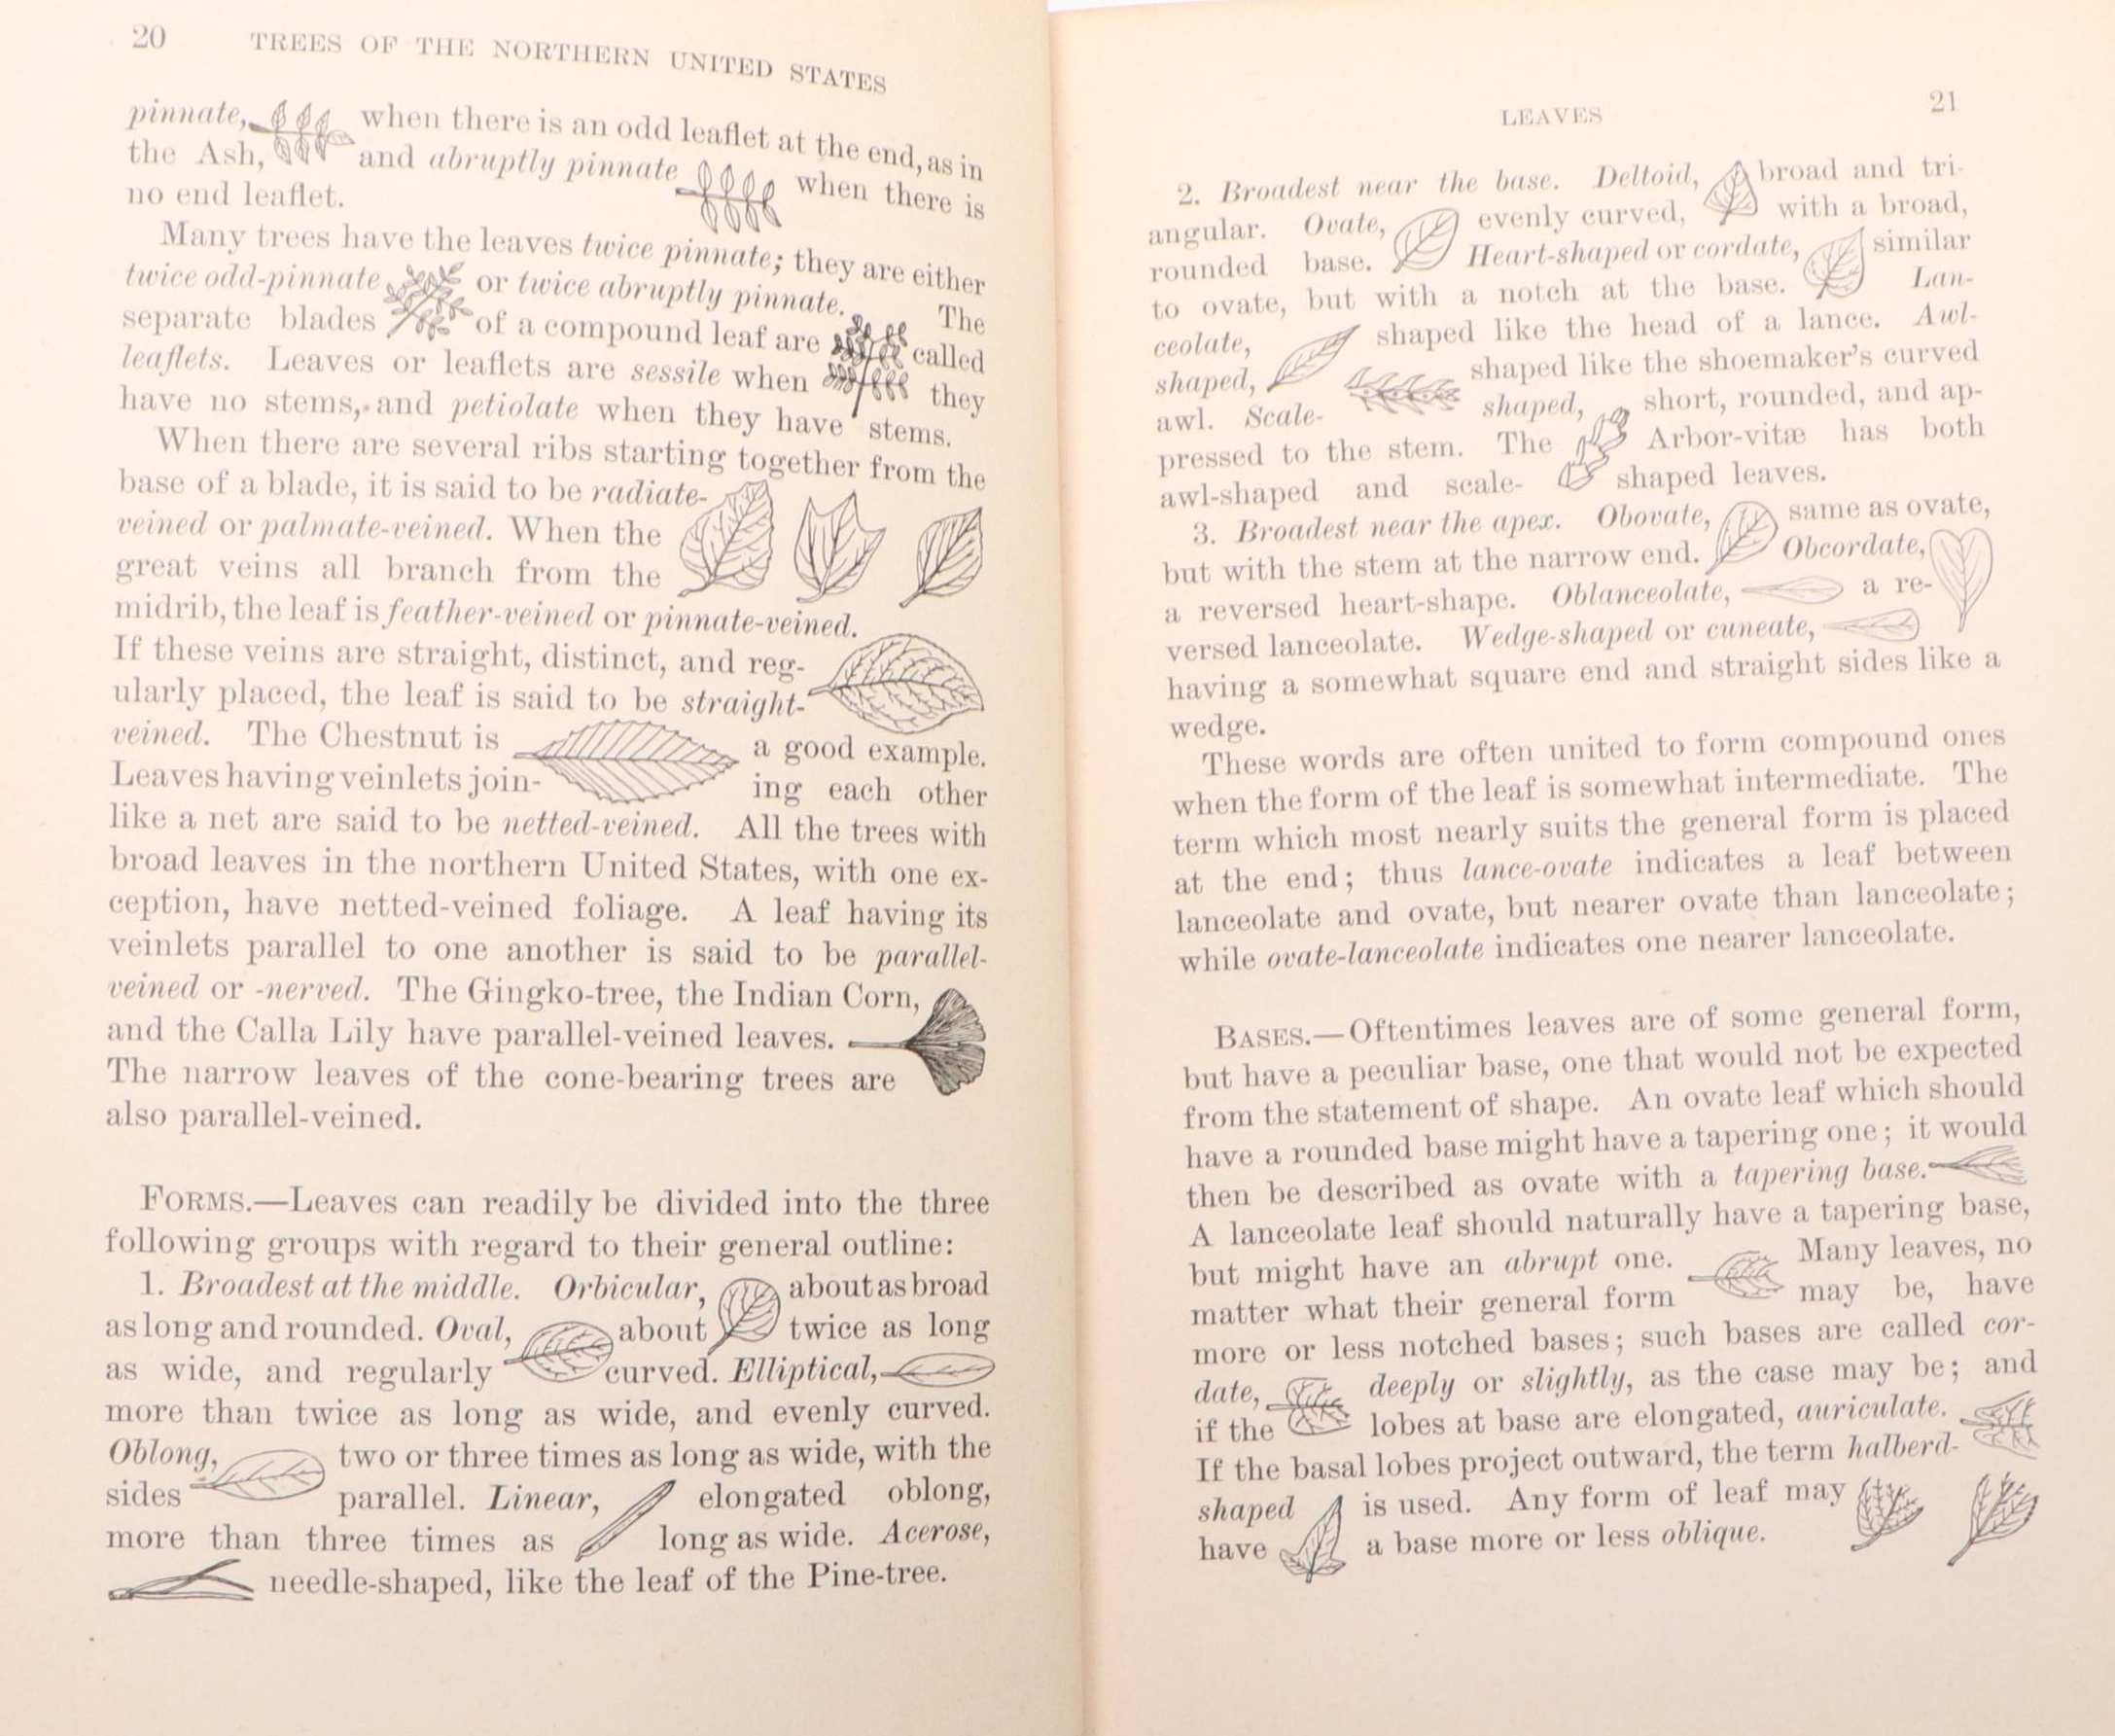 20 TREES OF THE NORTHERN UNITED STATES
pinnate, when there is an odd leaflet at the end, as in
the Ash, and abruptly pinnate when there is
no end leaflet.
Many trees have the leaves twice pinnate; they are either
twice odd-pinnate or twice abruptly pinnate. The
separate blades of a compound leaf are called
leaflets. Leaves or leaflets are sessile when they
have no stems, and petiolate when they have stems.
When there are several ribs starting together from the
base of a blade, it is said to be radiate-
veined or palmate-veined. When the
great veins all branch from the
midrib, the leaf is feather-veined or pinnate-veined.
If these veins are straight, distinct, and reg-
ularly placed, the leaf is said to be straight-
veined. The Chestnut is a good example.
Leaves having veinlets join- ing each other
like a net are said to be netted-veined. All the trees with
broad leaves in the northern United States, with one ex-
ception, have netted-veined foliage. A leaf having its
veinlets parallel to one another is said to be parallel-
veined or -nerved. The Gingko-tree, the Indian Corn,
and the Calla Lily have parallel-veined leaves.
The narrow leaves of the cone-bearing trees are
also parallel-veined.
FORMS.—Leaves can readily be divided into the three
following groups with regard to their general outline:
1. Broadest at the middle. Orbicular, about as broad
as long and rounded. Oval, about twice as long
as wide, and regularly curved. Elliptical,
more than twice as long as wide, and evenly curved.
Oblong, two or three times as long as wide, with the
sides parallel. Linear, elongated oblong,
more than three times as long as wide. Acerose,
needle-shaped, like the leaf of the Pine-tree.
LEAVES 21
2. Broadest near the base. Deltoid, broad and tri-
angular. Ovate, evenly curved, with a broad,
rounded base. Heart-shaped or cordate, similar
to ovate, but with a notch at the base. Lan-
ceolate, shaped like the head of a lance. Awl-
shaped, shaped like the shoemaker's curved
awl. Scale- shaped, short, rounded, and ap-
pressed to the stem. The Arbor-vitæ has both
awl-shaped and scale- shaped leaves.
3. Broadest near the apex. Obovate, same as ovate,
but with the stem at the narrow end. Obcordate,
a reversed heart-shape. Oblanceolate, a re-
versed lanceolate. Wedge-shaped or cuneate,
having a somewhat square end and straight sides like a
wedge.
These words are often united to form compound ones
when the form of the leaf is somewhat intermediate. The
term which most nearly suits the general form is placed
at the end; thus lance-ovate indicates a leaf between
lanceolate and ovate, but nearer ovate than lanceolate;
while ovate-lanceolate indicates one nearer lanceolate.
BASES.—Oftentimes leaves are of some general form,
but have a peculiar base, one that would not be expected
from the statement of shape. An ovate leaf which should
have a rounded base might have a tapering one; it would
then be described as ovate with a tapering base.
A lanceolate leaf should naturally have a tapering base,
but might have an abrupt one. Many leaves, no
matter what their general form may be, have
more or less notched bases; such bases are called cor-
date, deeply or slightly, as the case may be; and
if the lobes at base are elongated, auriculate.
If the basal lobes project outward, the term halberd-
shaped is used. Any form of leaf may
have a base more or less oblique.